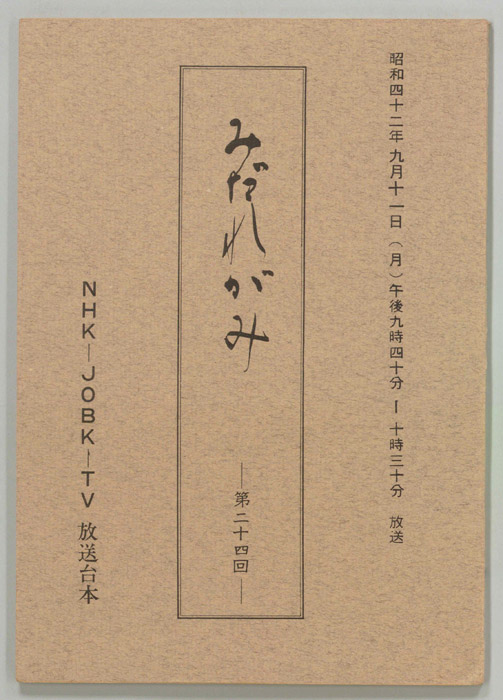 昭和四十二年九月十一日（月）午後九時四十分ー十時三十分 放送
みだれがみ
―第二十四回―
NHK―JOBK―TV 放送台本